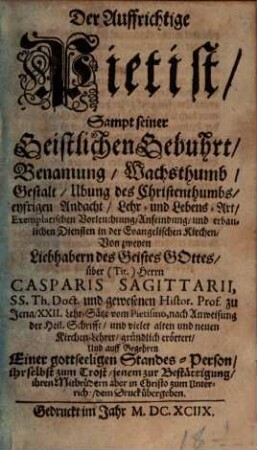 Der Auffrichtige
Pietist /
Sampt seiner
Geistlichen Gebuhrt /
Benantung / Wachsthumb /
Gestalt / Ubung des Christenthumbs /
eyfrigen Andacht / Lehr- und Lebens-Art /
Exemplarischen Vorleuchtung / Anfeindung / und erbau-
lichen Diensten in der Evangelischen Kirchen /
Von zweyen
Liebhabern des Geistes GOttes /
über (Tit.) Herrn
CASPARIS SAGITTARII,
SS. Th. Doct. und gewesenen Histor. Prof. zu
Jena / XXII. Lehr-Sätze vom Pietismo, nach Anweisung
der Heil. Schrifft / und vieler alten und neuen
Kirchen-Lehrer / gründlich erörtert /
Und auff Begehren
Einer gottseeligen Standes-Person /
ihr selbst zum Trost / jenem zur Bestättigung /
ihren Mitbrüdern aber in Christo zum Unter-
richt / dem Druck übergeben.
Gedruckt im Jahr M. DC. XCIIX.